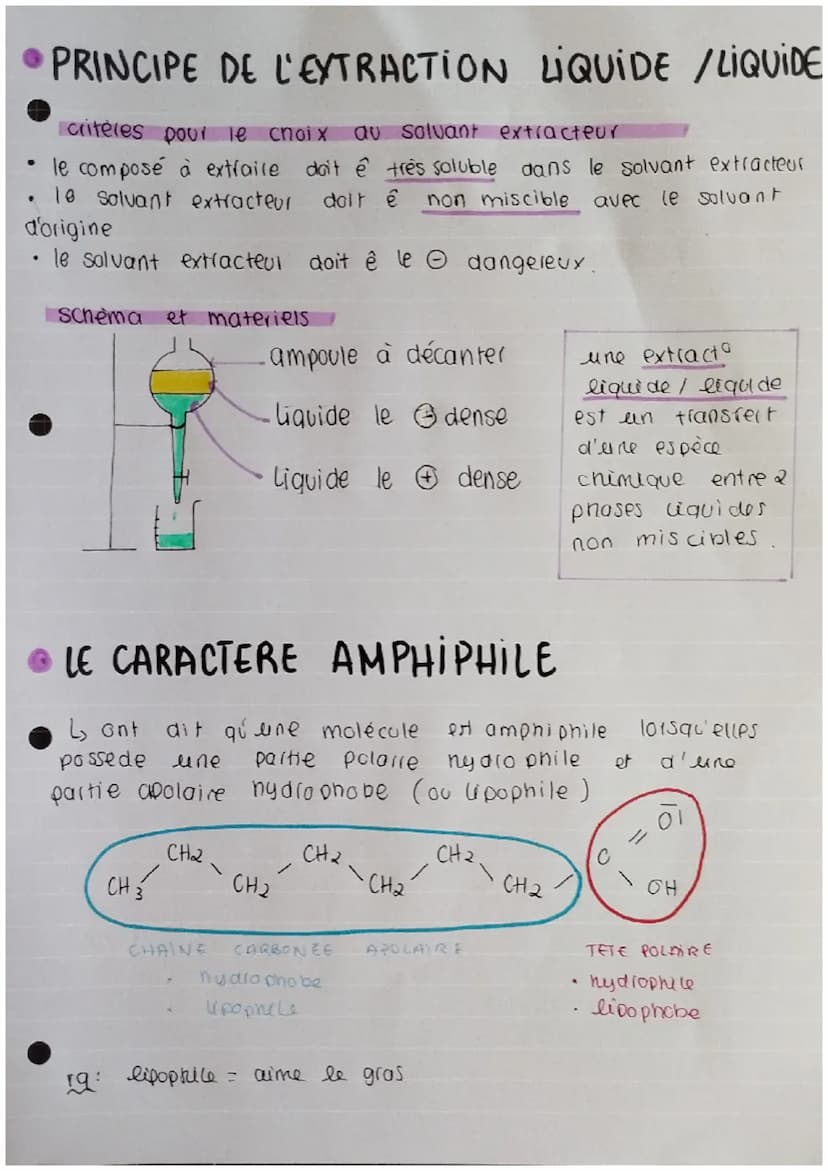 PRINCIPE DE L'EXTRACTION LIQUIDE / LIQUIDE
critères pour le choix du solvant extracteur
• le composé à extraire doit ê très soluble dans le solvant extracteur
• le solvant extracteur doit ê non miscible avec le solvant
d'origine
• le solvant extracteur doit ê le ⊖ dangereux.
schéma et materiels
ampoule à décanter
liquide le ⊖ dense
liquide le ⊕ dense
une extract°
liquide / liquide
est un transfert
d'une espèce
chimique entre 2
phases liquides
non miscibles.
LE CARACTERE AMPHIPHILE
↳ ont dit qu'une molécule est amphiphile lorsqu'elles
possede une partie polaire hydrophile et d'une
partie apolaire hydrophobe (ou lipophile)
CH3 CH2 CH2 CH2 CH2 CH2 CH2 C O OH
CHAINE CARBONEE APOLAIRE
• hydrophobe
• lipophile
TETE POLAIRE
• hydrophile
• lipophobe
rq: lipophile = aime le gras